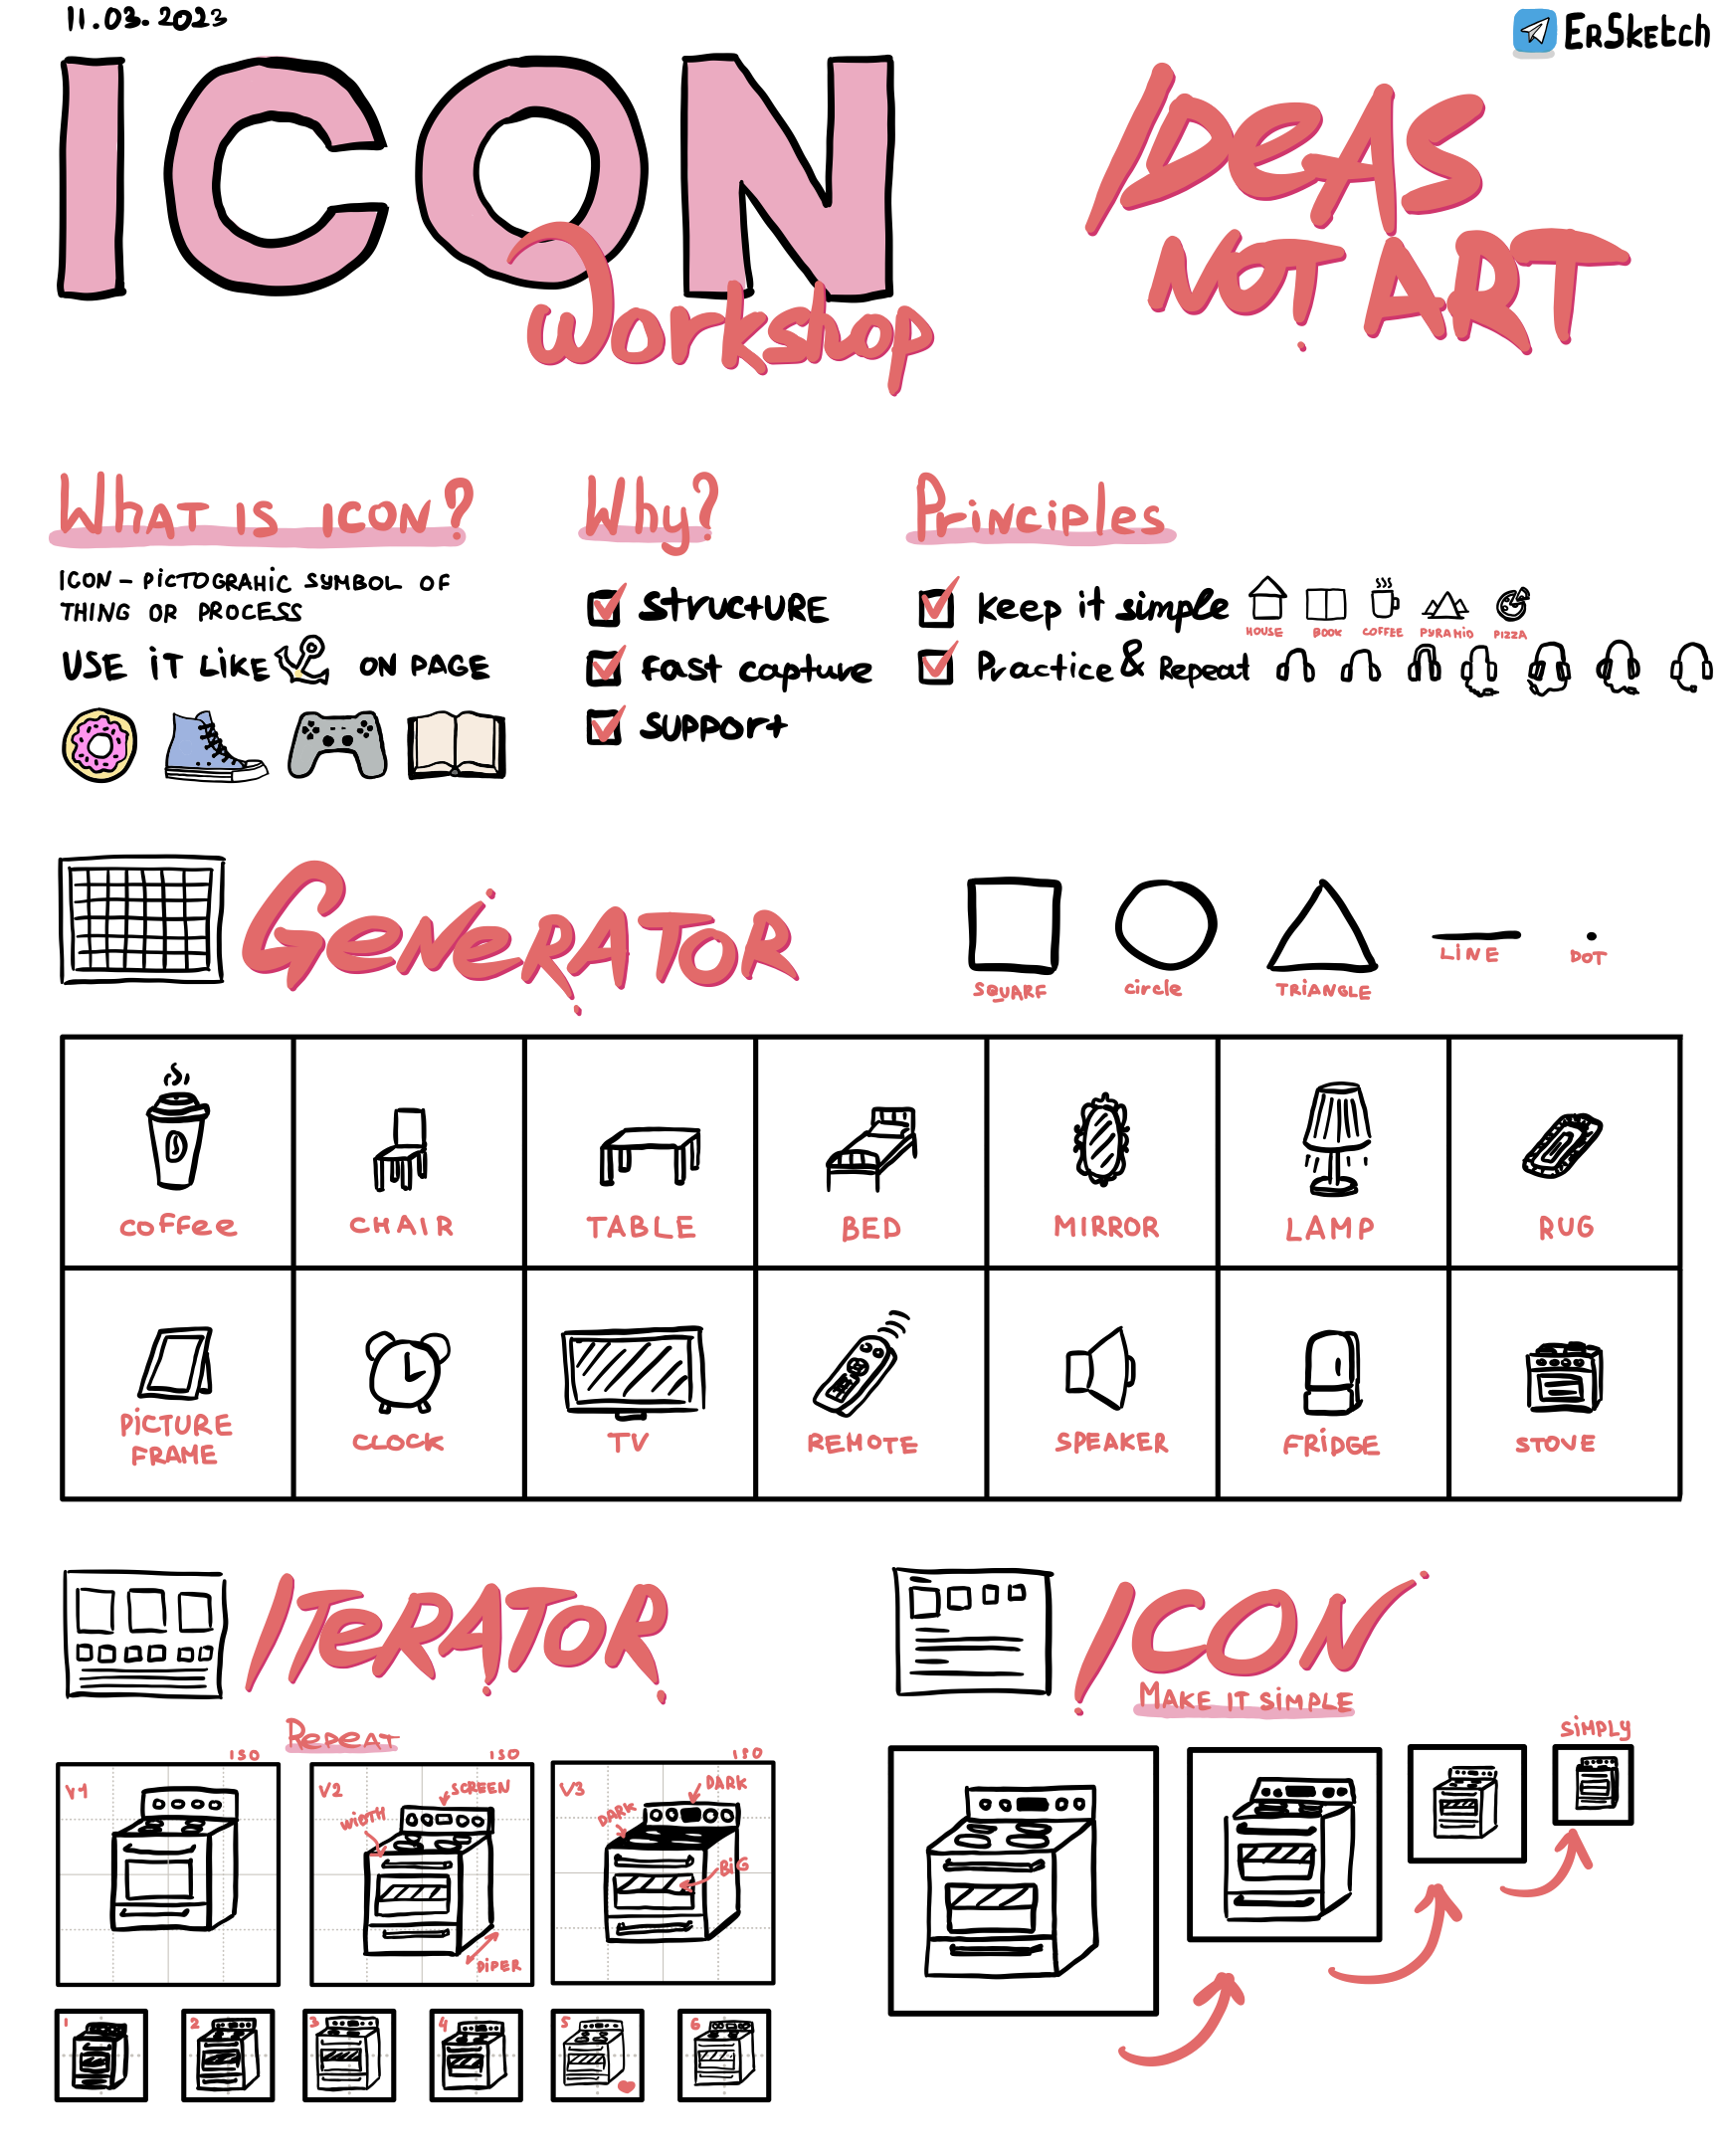 11.03.2023
ErSketch
ICON
workshop
IDEAS
NOT ART
WHAT IS ICON?
ICON - PICTOGRAHIC SYMBOL OF
THING OR PROCESS
USE IT LIKE ON PAGE
Why?
STRUCTURE
Fast capture
support
Principles
keep it simple
HOUSE
BOOK
COFFEE
PYRAMID
PIZZA
Practice & Repeat
GENERATOR
SQUARE
circle
TRIANGLE
LINE
DOT
COFFEE
CHAIR
TABLE
BED
MIRROR
LAMP
RUG
PICTURE
FRAME
CLOCK
TV
REMOTE
SPEAKER
FRIDGE
STOVE
ITERATOR
REPEAT
ISO
V1
ISO
V2
SCREEN
WIDTH
DIPER
ISO
V3
DARK
DARK
BIG
1
2
3
4
5
6
ICON
MAKE IT SIMPLE
SIMPLY